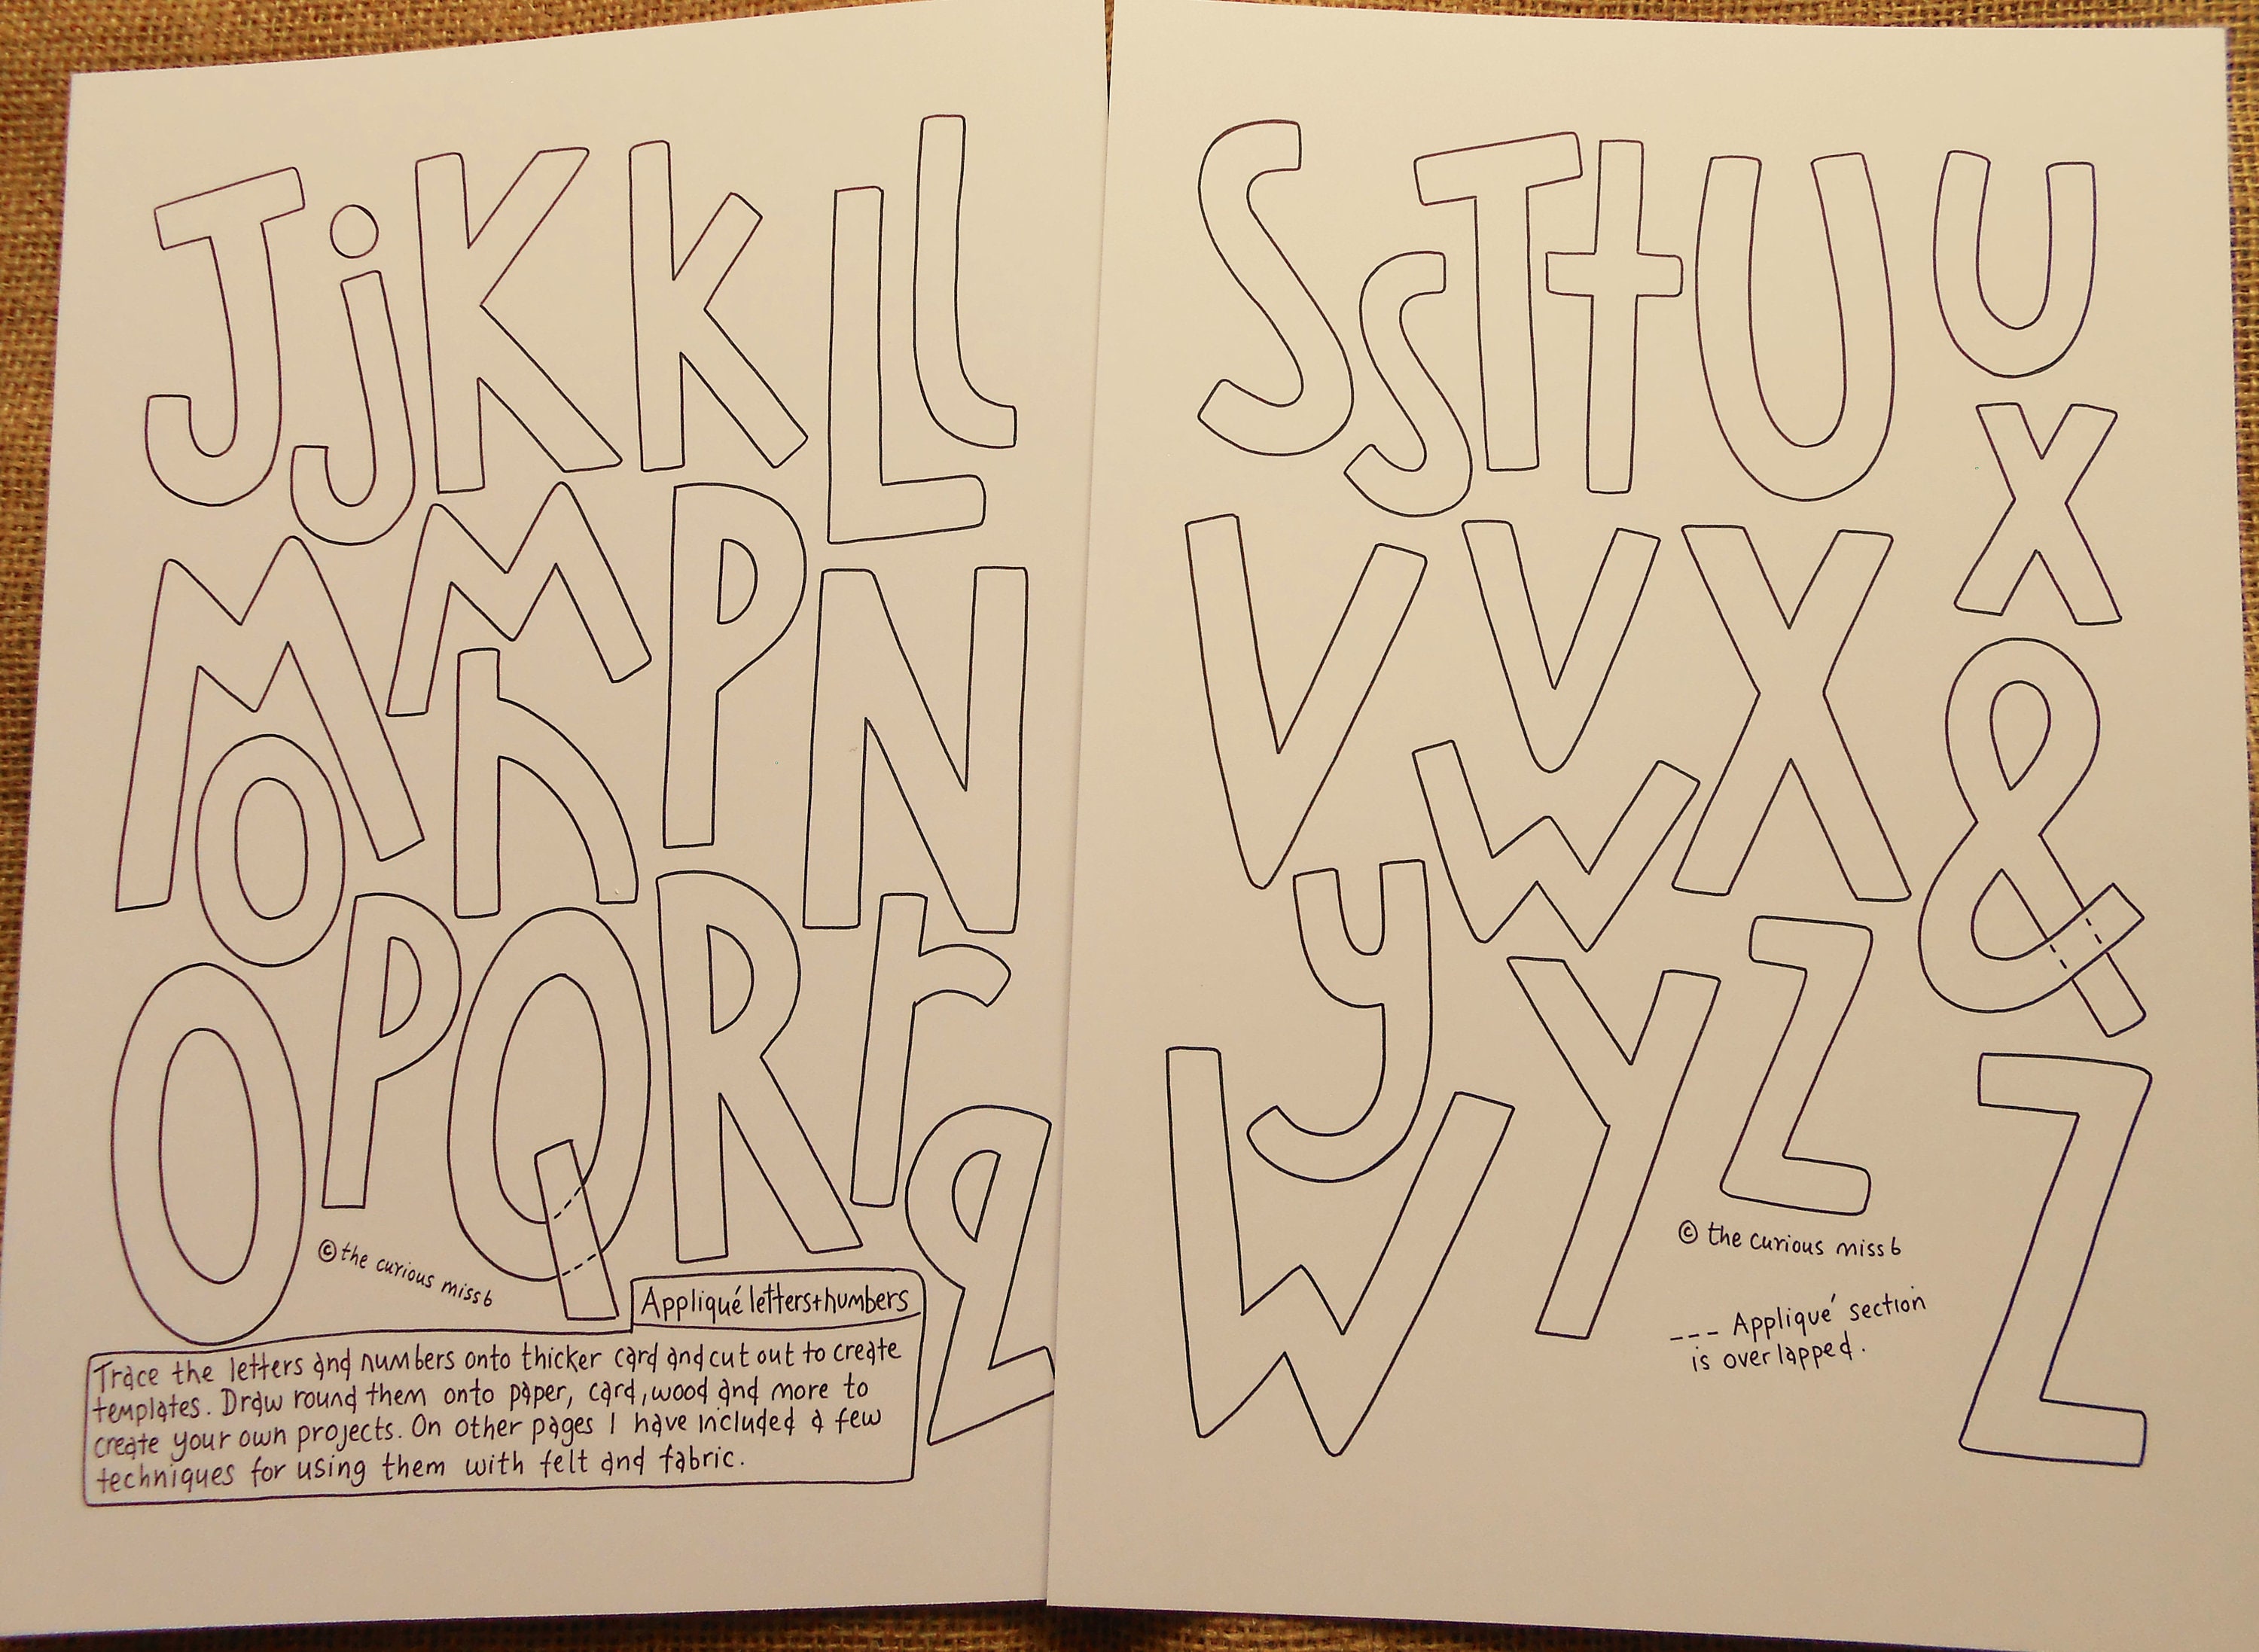 J j K k L l
M m P N
o n
O p Q R r
q
© the curious miss b
Appliqué letters+numbers
Trace the letters and numbers onto thicker card and cut out to create
templates. Draw round them onto paper, card, wood and more to
create your own projects. On other pages I have included a few
techniques for using them with felt and fabric.
S s T t U u
x
V v X
w &
y
W Y z
Z
© the curious miss b
--- Appliqué section
is overlapped.